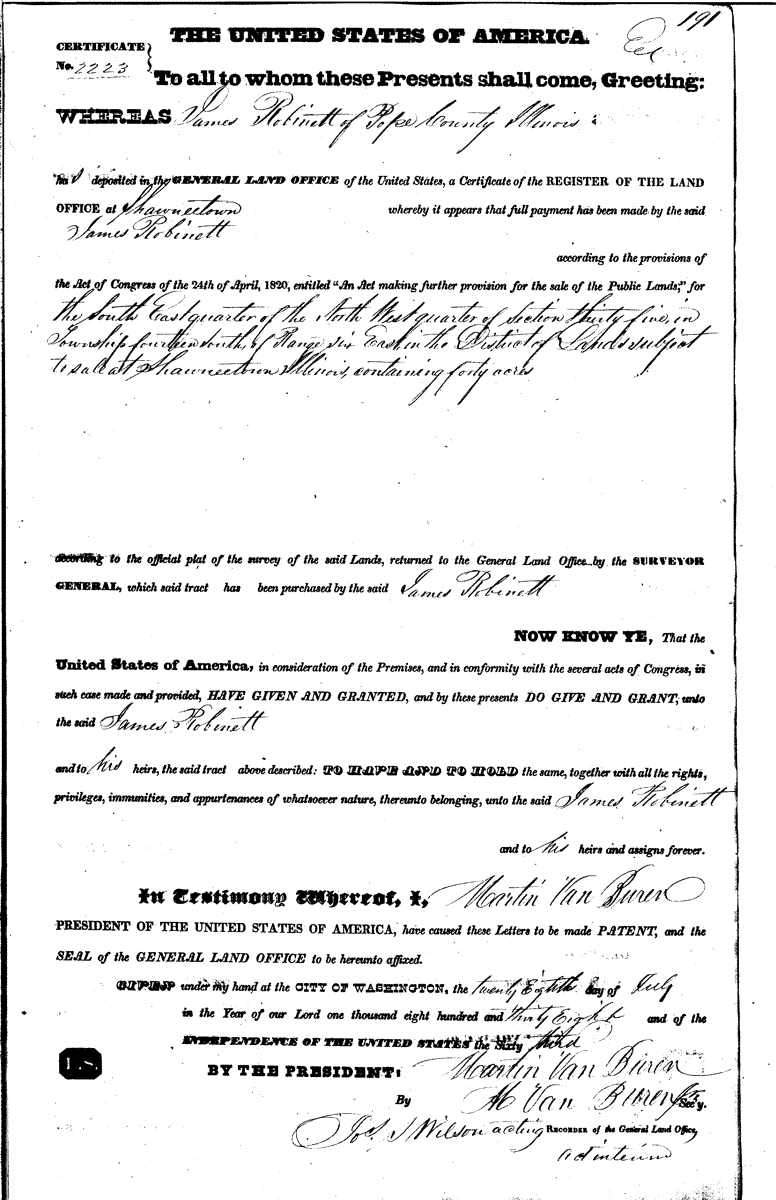 191
THE UNITED STATES OF AMERICA.
CERTIFICATE
No. 2223
To all to whom these Presents shall come, Greeting:
WHEREAS James Robinett of Pope County Illinois
ha s deposited in the GENERAL LAND OFFICE of the United States, a Certificate of the REGISTER OF THE LAND
OFFICE at Shawneetown whereby it appears that full payment has been made by the said
James Robinett
according to the provisions of
the Act of Congress of the 24th of April, 1820, entitled "An Act making further provision for the sale of the Public Lands," for
the South East quarter of the North West quarter of Section thirty five, in
Township fourteen South, of Range six East, in the District of Lands subject
to sale at Shawneetown Illinois, containing forty acres
according to the official plat of the survey of the said Lands, returned to the General Land Office by the SURVEYOR
GENERAL, which said tract has been purchased by the said James Robinett
NOW KNOW YE, That the
United States of America, in consideration of the Premises, and in conformity with the several acts of Congress, in
such case made and provided, HAVE GIVEN AND GRANTED, and by these presents DO GIVE AND GRANT, unto
the said James Robinett
and to his heirs, the said tract above described: TO HAVE AND TO HOLD the same, together with all the rights,
privileges, immunities, and appurtenances of whatsoever nature, thereunto belonging, unto the said James Robinett
and to his heirs and assigns forever.
In Testimony Whereof, I, Martin Van Buren
PRESIDENT OF THE UNITED STATES OF AMERICA, have caused these Letters to be made PATENT, and the
SEAL of the GENERAL LAND OFFICE to be hereunto affixed.
GIVEN under my hand at the CITY OF WASHINGTON, the twenty Eighth day of July
in the Year of our Lord one thousand eight hundred and thirty Eight and of the
INDEPENDENCE OF THE UNITED STATES the Sixty third
L.S.
BY THE PRESIDENT: Martin Van Buren
By M Van Buren Jr Sec'y.
Jos. S Wilson acting RECORDER of the General Land Office,
ad interim